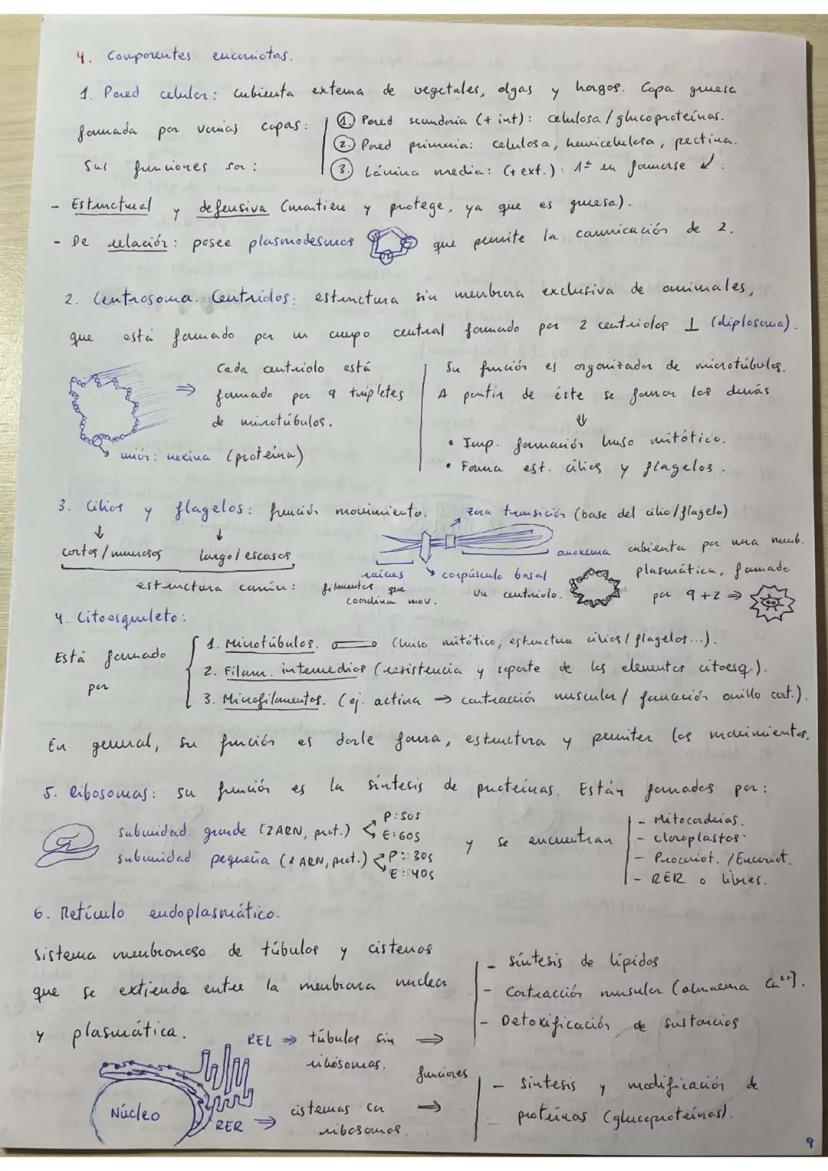 4. Componentes eucariotas.
1. Pared celular: cubierta externa de vegetales, algas y hongos. Capa gruesa
formada por varias capas:
① Pared secundaria (+ int): celulosa / glucoproteínas.
② Pared primaria: celulosa, hemicelulosa, pectina.
③ Lámina media: (+ ext.): 1ª en formarse
Sus funciones son:
- Estructural y defensiva (mantiene y protege, ya que es gruesa).
- De relación: posee plasmodesmos que permite la comunicación de 2.
2. Centrosoma. Centriolos: estructura sin membrana exclusiva de animales,
que está formado por un cuerpo central formado por 2 centriolos ⊥ (diplosoma).
⇒ Cada centriolo está
formado por 9 tripletes
de microtúbulos.
unión: nexina (proteína)
Su función es organizador de microtúbulos.
A partir de éste se forman los demás
⇓
• Imp. formación huso mitótico.
• Forma est. cilios y flagelos.
3. Cilios y flagelos: función movimiento.
↓ ↓
cortos / numerosos largo / escasos
estructura común:
zona transición (base del cilio/flagelo)
axonema
raíces
filamentos que
coordinan mov.
corpúsculo basal
un centriolo.
cubierta por una memb.
plasmática, formado
por 9+2 ⇒
4. Citoesqueleto:
Está formado
por
1. Microtúbulos. (huso mitótico, estructura cilios / flagelos...).
2. Filam. intermedios (resistencia y soporte de los elementos citoesq.).
3. Microfilamentos. (ej. actina → contracción muscular / formación anillo cont.).
En general, su función es darle forma, estructura y permiten los movimientos.
5. Ribosomas: su función es la síntesis de proteínas. Están formados por:
subunidad grande (2ARN, prot.) P: 50S
E: 60S
subunidad pequeña (1ARN, prot.) P: 30S
E: 40S
y se encuentran
- Mitocondrias.
- Cloroplastos.
- Procariot. / Eucariot.
- RER o libres.
6. Retículo endoplasmático.
Sistema membranoso de túbulos y cisternas
que se extiende entre la membrana nuclear
y plasmática.
REL ⇒ túbulos sin ⇒
ribosomas.
funciones
- Síntesis de lípidos
- Contracción muscular (almacena Ca²⁺).
- Detoxificación de sustancias
Núcleo
RER ⇒ cisternas con ⇒
ribosomas.
- Síntesis y modificación de
proteínas (glucoproteínas).
9